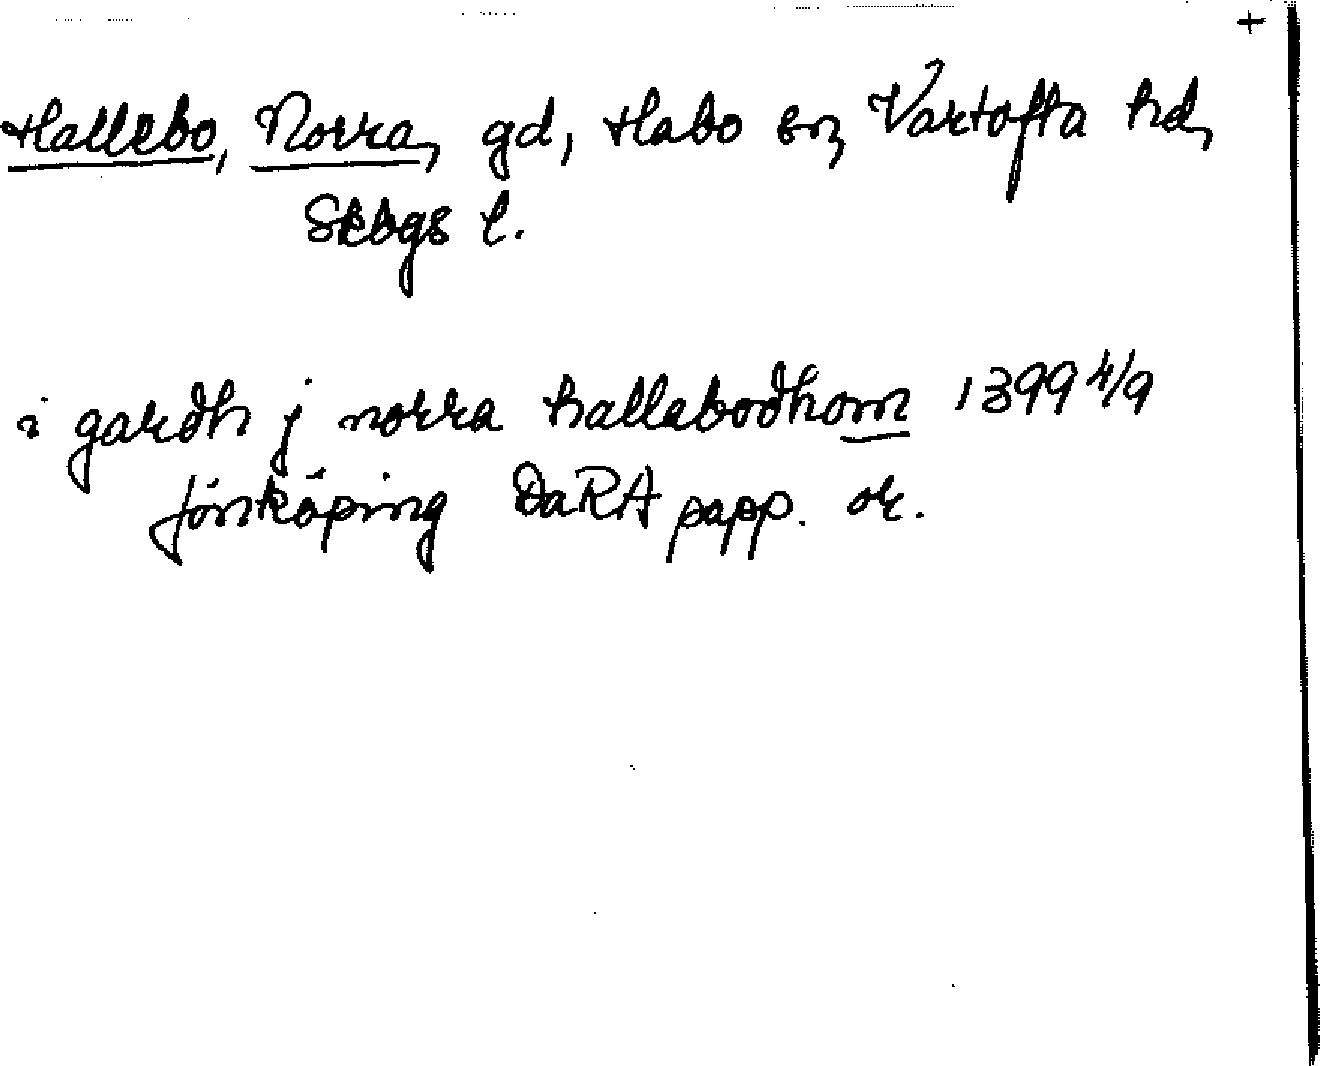 +
Hallebo, Norra, gd, Habo sn, Vartofta hd,
Skbgs l.
i gardh j norra hallabodhom 1399 4/9
Jönköping DaRA papp. or.